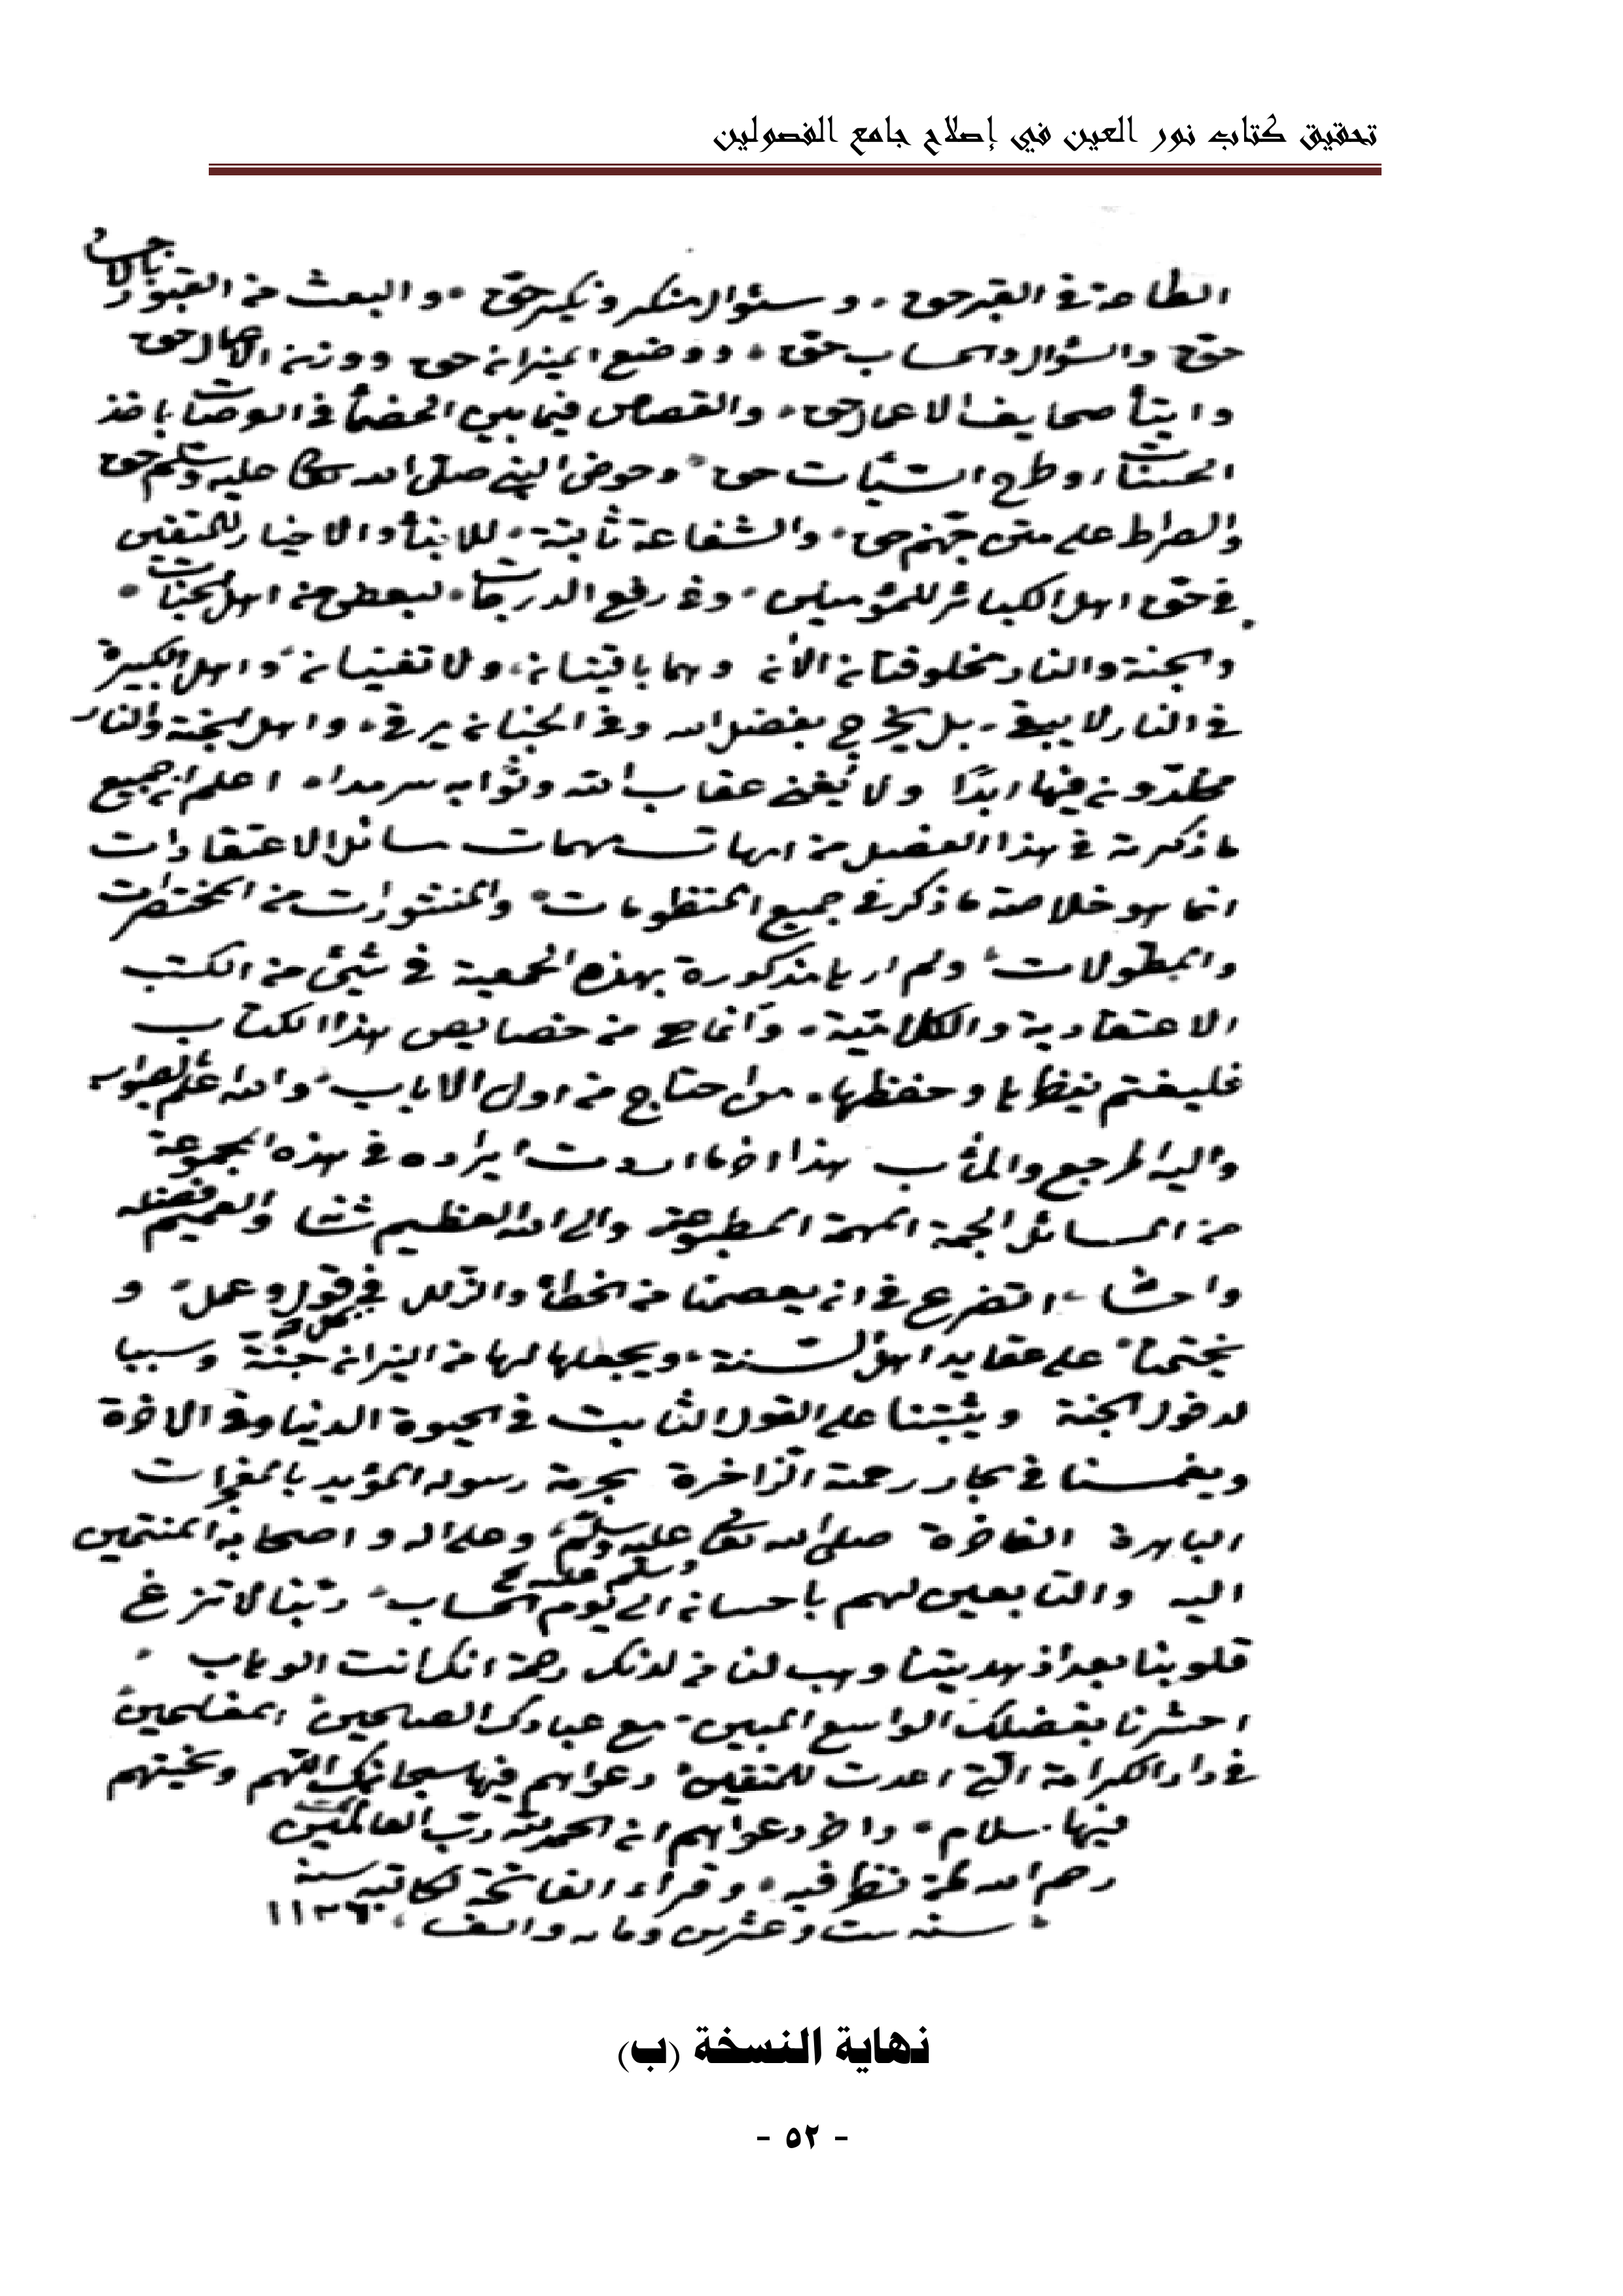 تحقيق كتاب نور العين في إصلاح جامع الفصولين
الطاعة في القبر حق وسئوال منكر ونكير حق والبعث من القبور بالاجساد
حق والسئوال والحساب حق ووضع الميزان حق ووزن الاعمال حق
وايتأ صحايف الاعمال حق والقصاص فيما بين الخصمأ في العرصات باخذ
الحسنات اوطرح السيئات حق وحوض النبي صلى الله تعالى عليه وسلم حق
والصراط على متن جهنم حق والشفاعة ثابتة للانبيأ والاخيار للمتقين
في حق اهل الكبائر للمؤمنين وفي رفع الدرجات لبعض من اهل الجنات
والجنة والنار مخلوقتان الأن وهما باقيتان ولا تفنيان واهل الكبيرة
في النار لا يبقى بل يخرج بفضل الله وفي الجنان يرقى واهل الجنة والنار
مخلدون فيها ابدًا ولا يفنى عقاب الله وثوابه سرمدا اعلم ان جميع
ما ذكرته في هذا الفصل من امهات مهمات مسائل الاعتقادات
انما هو خلاصة ما ذكر في جميع المنظومات والمنثورات من المختصرات
والمطولات ولم ارها مذكورة بهذه الجمعية في شيئ من الكتب
الاعتقادية والكلامية وانما هي من خصايص هذا الكتاب
فليغتنم بنظرها وحفظها من احتاج من اولى الالباب والله اعلم بالصواب
واليه المرجع والمأب هذا اخر ما اردت ايراده في هذه المجموعة
من المسائل الجمة المهمة المطبوعة والى الله العظيم شأنه والعميم فضله
واحسانه اتضرع في ان يعصمنا من الخطأ والزلل في كل قول وعمل و
يختمنا على عقايد اهل السنة ويجعلها لها من النيران جنة وسببا
لدخول الجنة ويثبتنا على القول الثابت في الحيوة الدنيا وفي الاخرة
ويغمسنا في بحار رحمته الزاخرة بحرمة رسوله المؤيد بالمعجزات
الباهرة الفاخرة صلى الله تعالى عليه وسلم وعلى اله واصحابه المنتمين
اليه والتابعين لهم باحسان الى يوم الحساب ربنا لا تزغ
قلوبنا بعد اذ هديتنا وهب لنا من لدنك رحمة انك انت الوهاب
احشرنا بفضلك الواسع المبين مع عبادك الصالحين المفلحين
في دار الكرامة التي اعدت للمتقين دعواهم فيها سبحانك اللهم وتحيتهم
فيها سلام واخر دعواهم ان الحمد لله رب العالمين
رحم الله لمن نظر فيه وقراء الفاتحة لكاتبه سنة
سنه ست وعشرين ومايه والف ١١٢٦
نهاية النسخة (ب)
- ٥٢ -